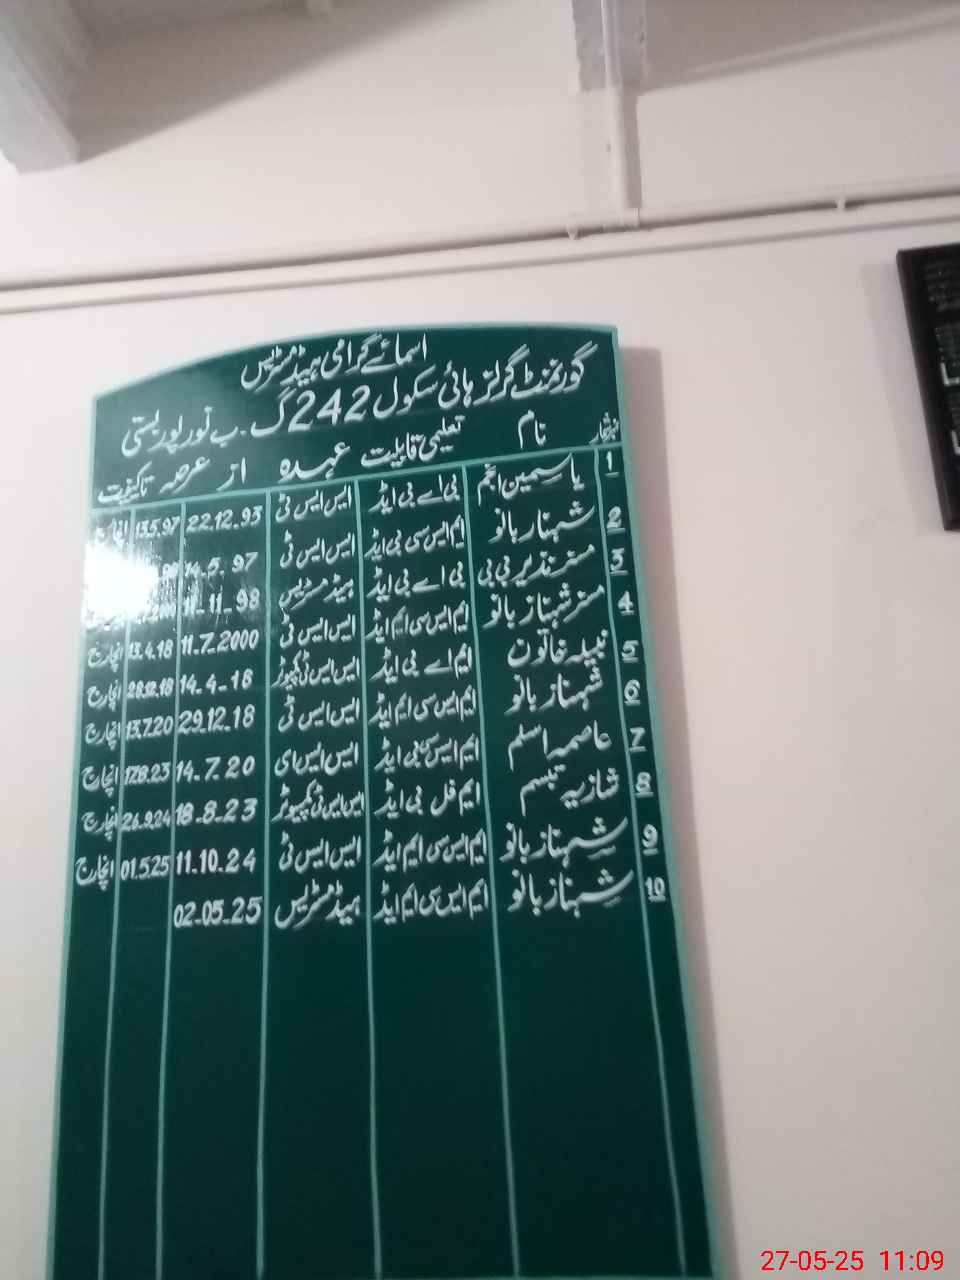 اسمائے گرامی ہیڈمسٹریس
گورنمنٹ گرلز ہائی سکول 242 گ۔ب نور پور بستی
نمبر شمار نام تعلیمی قابلیت عہدہ از عرصہ تا کیفیت
1 یاسمین انجم بی اے بی ایڈ ایس ایس ٹی 22.12.93 13.5.97 انچارج
2 شہناز بانو ایم ایس سی بی ایڈ ایس ایس ٹی 14.5.97
3 مسز نذیر بی بی بی اے بی ایڈ ہیڈ مسٹریس 11-11-98
4 مسز شہناز بانو ایم ایس سی ایم ایڈ ایس ایس ٹی 11.7.2000 13.4.18 انچارج
5 نبیلہ خاتون ایم اے بی ایڈ ایس ایس ٹی کمپیوٹر 14-4-18 28.12.18 انچارج
6 شہناز بانو ایم ایس سی ایم ایڈ ایس ایس ٹی 29.12.18 13.7.20 انچارج
7 عاصمہ اسلم ایم ایس سی بی ایڈ ایس ایس ای 14.7.20 17.8.23 انچارج
8 شازیہ تبسم ایم فل بی ایڈ ایس ایس ٹی کمپیوٹر 18-8-23 26.9.24 انچارج
9 شہناز بانو ایم ایس سی ایم ایڈ ایس ایس ٹی 11.10.24 01.5.25 انچارج
10 شہناز بانو ایم ایس سی ایم ایڈ ہیڈ مسٹریس 02-05-25
27-05-25 11:09